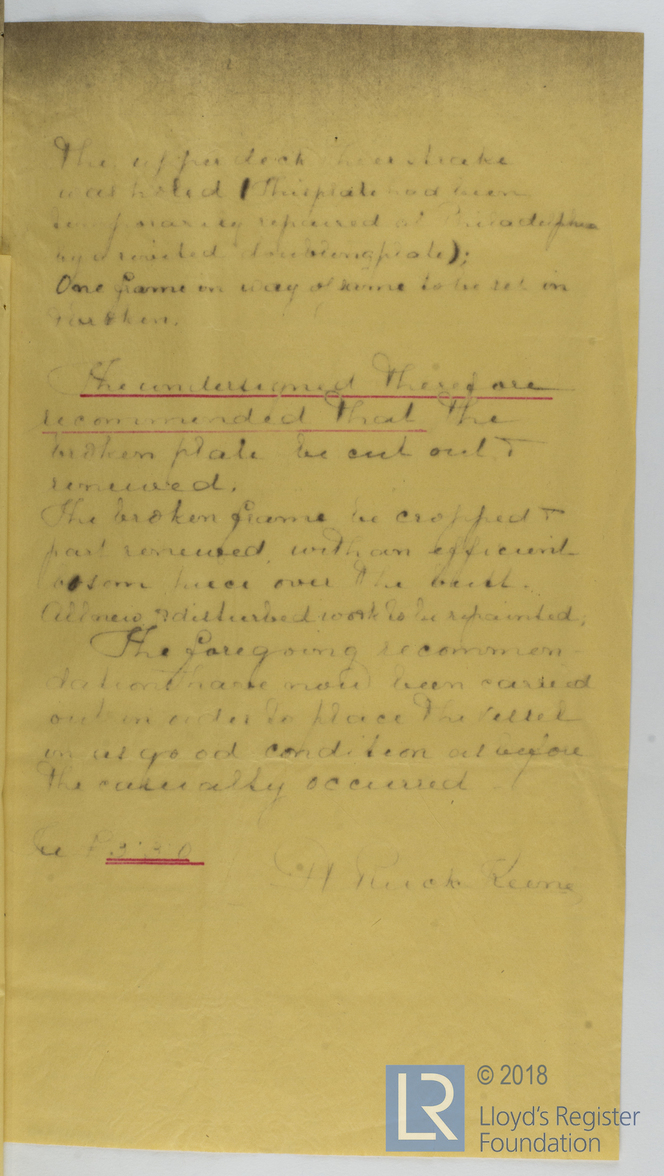 The upper deck sheerstrake
was holed (This plate had been
temporarily repaired at Philadelphia
by a riveted doubling plate);
One frame in way of same to be set in
broken.
The undersigned therefore
recommended that the
broken plate be cut out &
renewed.
The broken frame be cropped &
part renewed, with an efficient
bosom piece over the butt.
All new & disturbed work to be repainted;
The foregoing recommen-
dations have now been carried
out in order to place the vessel
in as good condition as before
the casualty occurred
Keene
LR
© 2018
Lloyd's Register
Foundation